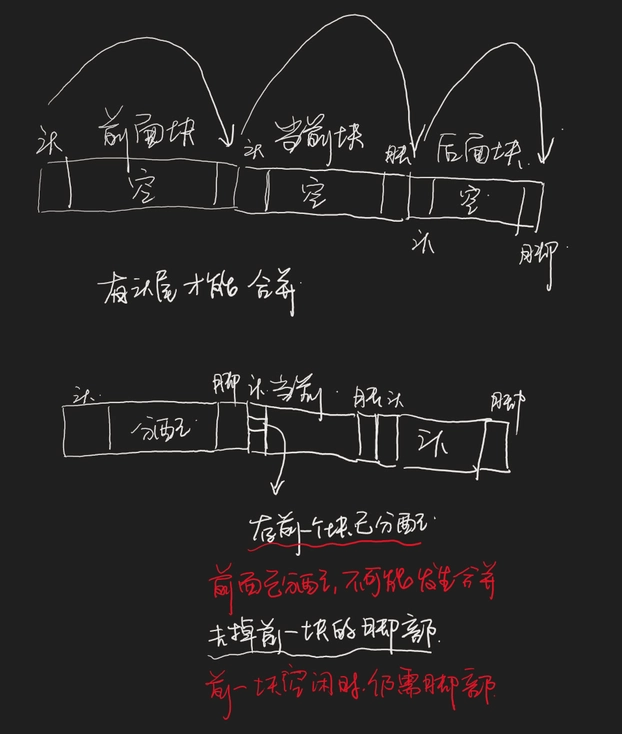 头 前面块 头 当前块 脚 后面块
空 空 空
头 脚
有头尾才能合并
头 脚 头 当前 脚 头 脚
分配 头
存前一个块已分配
前面已分配,不可能发生合并
去掉前一块的脚部
前一块空闲时.仍需脚部